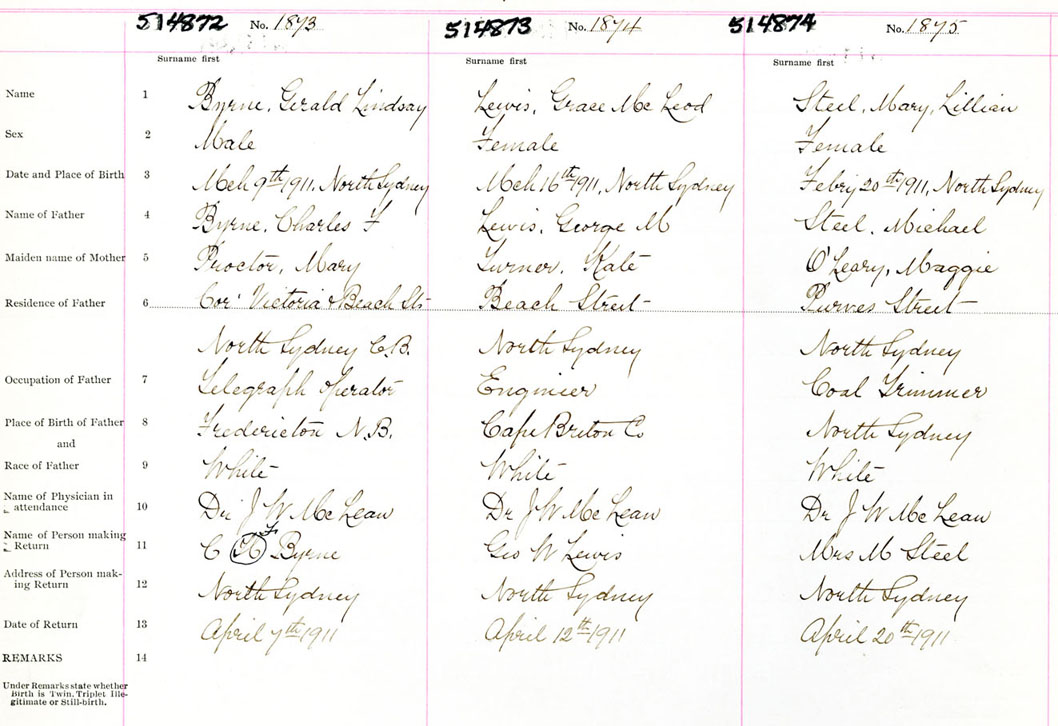 514872 No. 1873 514873 No. 1874 514874 No. 1875
Surname first Surname first Surname first
Name 1 Byrne, Gerald Lindsay Lewis, Grace Mc Leod Steel, Mary, Lillian
Sex 2 Male Female Female
Date and Place of Birth 3 Mch 9th 1911, North Sydney Mch 16th 1911, North Sydney Febry 20th 1911, North Sydney
Name of Father 4 Byrne, Charles F Lewis, George M Steel, Michael
Maiden name of Mother 5 Proctor, Mary Turner, Kate O'Leary, Maggie
Residence of Father 6 Cor' Victoria & Beach Sts Beach Street Purves Street
North Sydney C.B. North Sydney North Sydney
Occupation of Father 7 Telegraph operator Engineer Coal Trimmer
Place of Birth of Father 8 Fredericton N.B. Cape Breton Co North Sydney
and
Race of Father 9 White White White
Name of Physician in
attendance 10 Dr J W Mc Lean Dr J W Mc Lean Dr J W Mc Lean
Name of Person making
Return 11 C F Byrne Geo W Lewis Mrs M Steel
Address of Person mak-
ing Return 12 North Sydney North Sydney North Sydney
Date of Return 13 April 7th 1911 April 12th 1911 April 20th 1911
REMARKS 14
Under Remarks state whether
Birth is Twin, Triplet Ille-
gitimate or Still-birth.